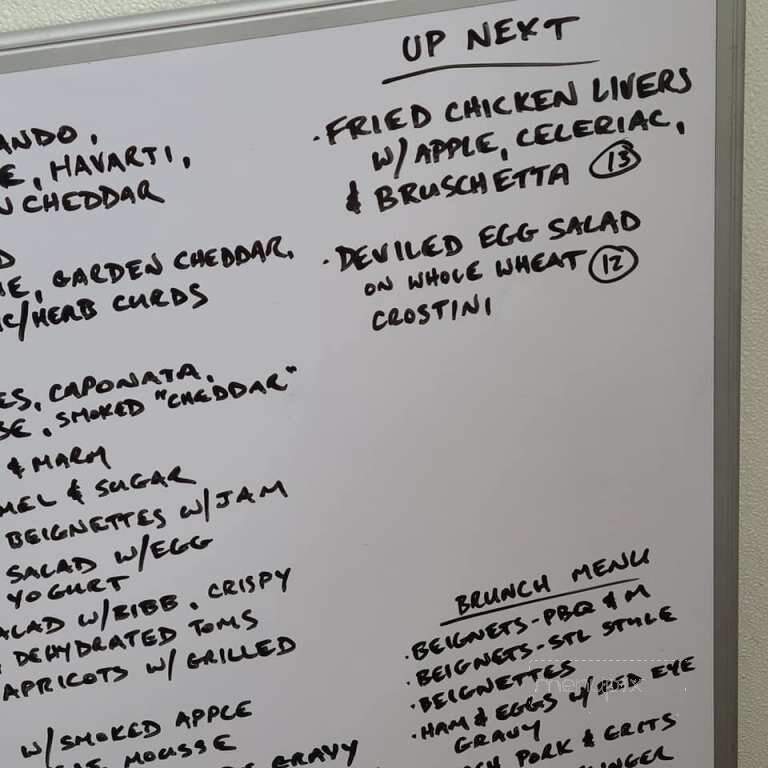 ANDO,
E, HAVARTI,
N CHEDDAR
D
HE, GARDEN CHEDDAR,
IC/HERB CURDS
ES, CAPONATA,
SE, SMOKED "CHEDDAR"
& MARM
MEL & SUGAR
BEIGNETTES W/JAM
SALAD W/EGG
YOGURT
ALAD W/BIBB, CRISPY
DEHYDRATED TOMS
APRICOTS W/ GRILLED
W/SMOKED APPLE
MOUSSE
GRAVY
UP NEXT
·FRIED CHICKEN LIVERS
W/APPLE, CELERIAC,
& BRUSCHETTA 13
·DEVILED EGG SALAD
ON WHOLE WHEAT 12
CROSTINI
BRUNCH MENU
·BEIGNETS-PBQ & M
·BEIGNETS-STL STYLE
·BEIGNETTES
·HAM & EGGS W/RED EYE
GRAVY
PORK & GRITS
LINGER
menupix